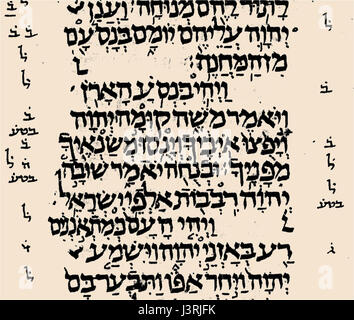 לתור להם מנוחה וענן
יהוה עליהם יומם בנסעם
מן המחנה
ויהי בנסע הארן
ויאמר משה קומה יהוה
ויפצו איביך וינסו משנאיך
מפניך ובנחה יאמר שובה
יהוה רבבות אלפי ישראל
ויהי העם כמתאננים
רע באזני יהוה וישמע
יהוה ויחר אפו ותבער בם